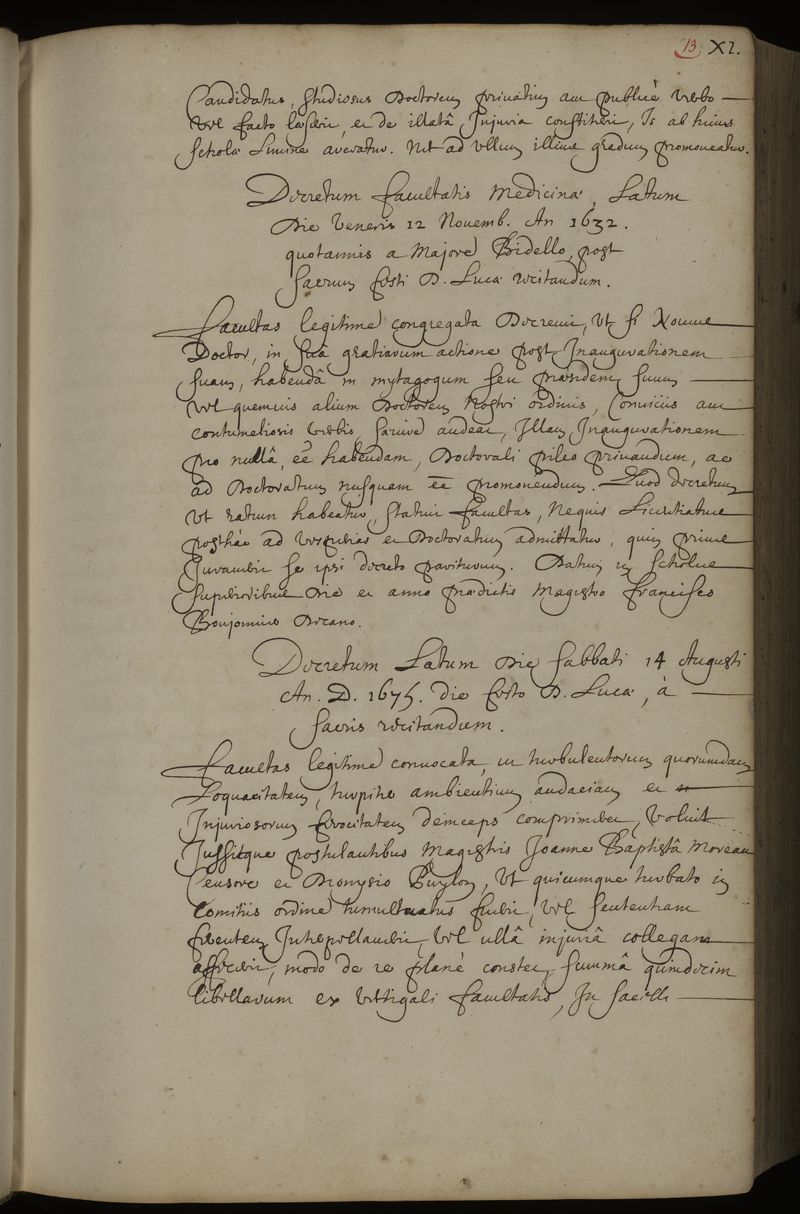 13 XI.
Candidatus, Studiosus Doctorem privatim aut publicè verbo
vel facto læserit, et de illatâ Injuria constiterit, Is ab huius
scholæ Limine arceatur. Nec ad ullum illius gradum promoveatur.
Decretum facultatis Medicinæ, Latum
Die Veneris 12 Novemb. An 1632.
quotannis a Majore Bidello, post
sacrum festi D. Lucæ recitandum.
Facultas legitime congregata Decrevit, Ut si Novus
Doctor, in sua gratiarum actione post Inaugurationem
suam, habendâ in mytagogum seu præsidem suum
vel quemuis alium Doctorem Nostri ordinis, Conviciis aut
contumeliosis verbis, sævire audeat, Illam Inaugurationem
pro nullâ, eē habendam, Doctorali pileo privandum, ac
ad Doctoratum nusquam eē promovendum. Quod decretum
Ut ratum habeatur, statuit facultas, Nequis Licentiatus
posthàc ad vesperias et Doctoratum admittatur, quin prius
Juraverit se ipsi decreto pariturum. Datum in scholis
superioribus Die et anno prædictis Magistro Francisco
Boujonnier Decano.
Decretum Latum Die sabbati 14 Augusti
An. D. 1675. die festo D. Lucæ, à
sacris recitandum.
Facultas legitime convocata, ut turbulentorum quorumdam
Loquacitatem, turpiter ambientium audaciam et
Injuriosorum ferocitatem deinceps comprimeret, voluit
Jussitque postulantibus Magistris Joanne Baptistâ Moreau
Censore et Dionysio Puylon, Ut quicumque turbato in
Comitiis ordine tumultuatus fuerit, vel sententiam
ferentem Interpellaverit, vel ullâ injuriâ collegam
affecerit, modo de re planè constet, summâ quindecim
libellarum ex vectigali facultatis, In sacelli